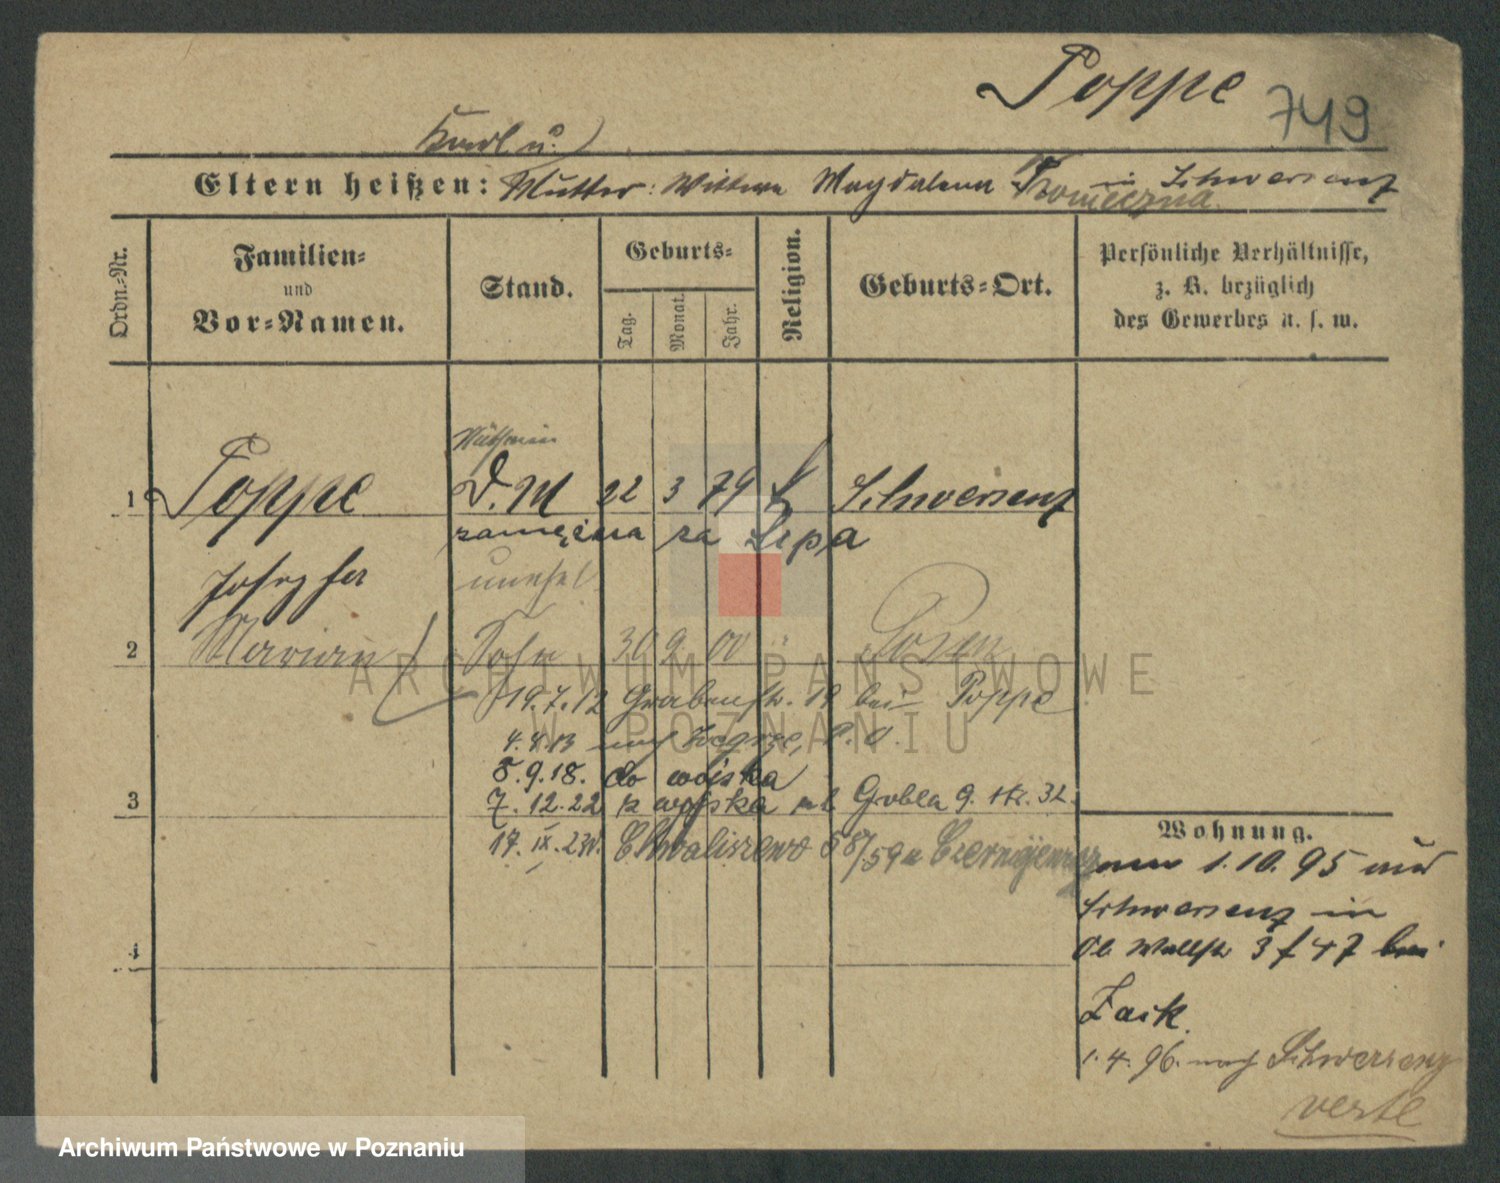 Poppe 749
Karl u.
Eltern heißen: Mutter: Wittwe Magdalena in Schwersenz
Ordn.-Nr.
Familien-
und
Vor-Namen.
Stand.
Geburts-
Tag.
Monat.
Jahr.
Religion.
Geburts-Ort.
Persönliche Verhältnisse,
z. B. bezüglich
des Gewerbes u. s. w.
1 Poppe D.M 22 3 79 k Schwersenz
zamężna za Lepa
Josepha unehel.
2 Marian Sohn 30 9 00 " Posen
19.7.12 Grabenstr. 19 bei Poppe
4.4.13 nach Zegrze, P.O.
5.9.18. do wojska
3 7.12.22 z wojska ul Grobla 9. 32.
17. IX. 23 Chwaliszewo 58/59
Wohnung.
am 1.10.95 aus
Schwersenz in
Ob Wallstr 3 f 47 bei
4
Zack.
1.4.96. nach Schwersenz
verte
ARCHIWUM PAŃSTWOWE
W POZNANIU
Archiwum Państwowe w Poznaniu